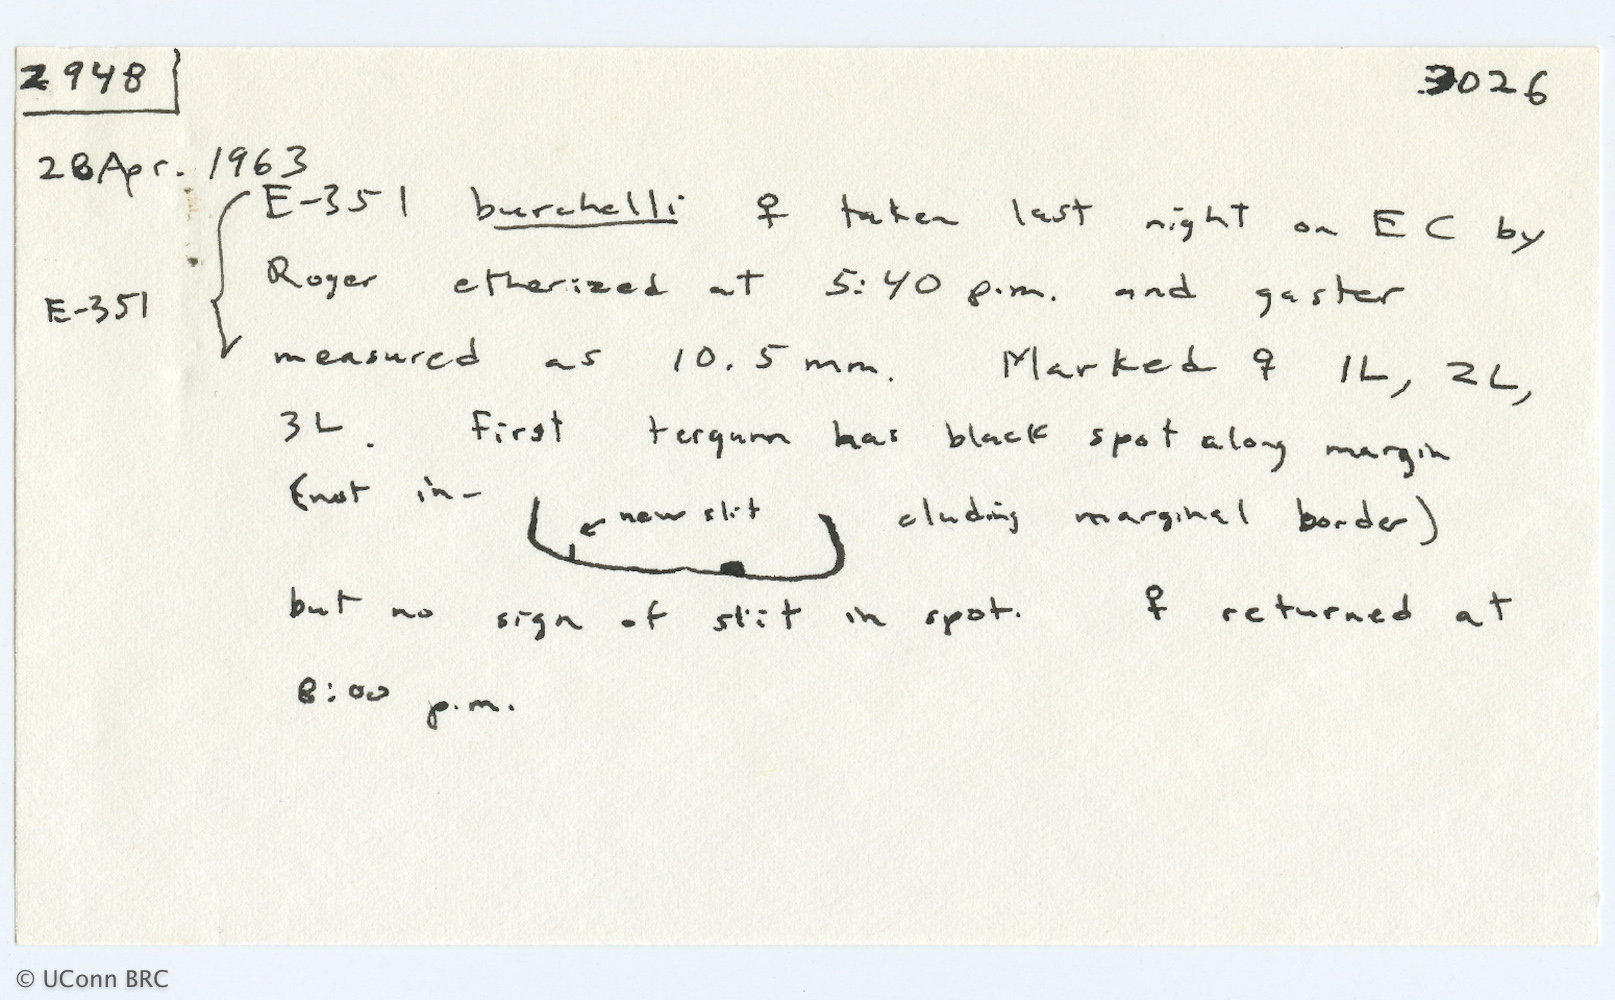 2948
3026
28 Apr. 1963
E-351 burchelli ♀ taken last night on EC by
E-351
Roger etherized at 5:40 p.m. and gaster
measured as 10.5 mm. Marked ♀ 1L, 2L,
3L. First tergum has black spot along margin
(not in-
new slit
cluding marginal border)
but no sign of slit in spot. ♀ returned at
8:00 p.m.
© UConn BRC